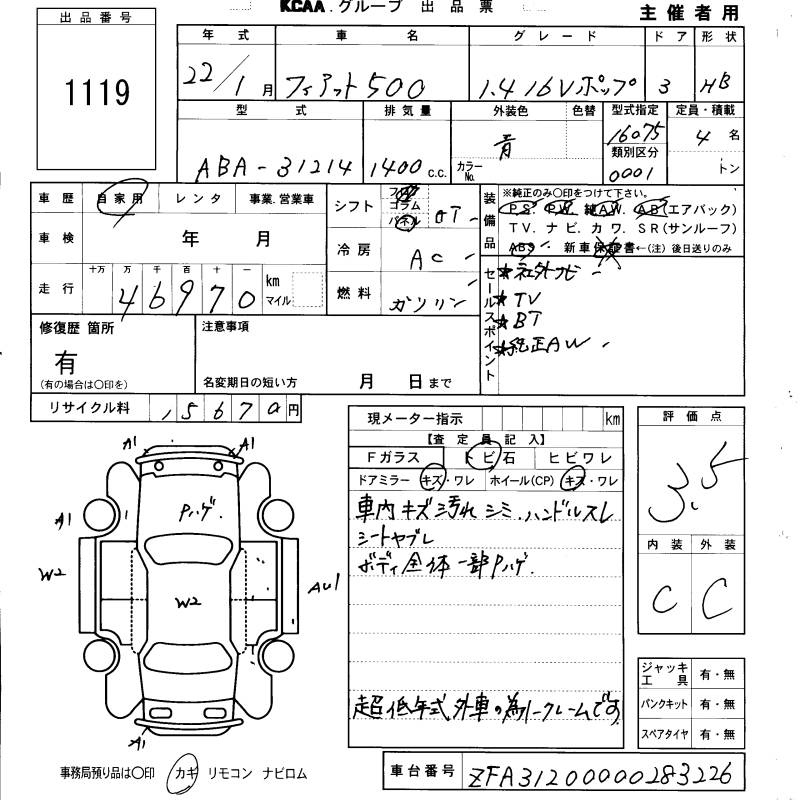 KCAA.グループ 出品票
主催者用
出品番号
1119
年式 車名 グレード ドア 形状
22/1月 フィアット500 1.4 16Vポップ 3 HB
型式 排気量 外装色 色替 型式指定 定員・積載
ABA-31214 1400 c.c. 青 カラーNo. 16075 4名
類別区分
0001 トン
車歴 自家用 レンタ 事業.営業車
シフト フロア コラム パネル OT
装備品
※純正のみ○印をつけて下さい。
P.S. P.W. 純A.W. A.B(エアバック)
T.V. ナビ. カワ. S R(サンルーフ)
ABS 新車保証書←(注)後日送りのみ
車検 年 月
冷房 AC
走行 十万 万 千 百 十 一
46970 km マイル
燃料 ガソリン
セールスポイント
★社外ナビ
★TV
★BT
★純正AW
修復歴 箇所
有
(有の場合は○印を)
注意事項
名変期日の短い方 月 日まで
リサイクル料 15670円
現メーター指示 km
【査定員記入】
Fガラス トビ石 ヒビワレ
ドアミラー キズ・ワレ ホイール(CP) キズ・ワレ
車内キズ汚れシミ.ハンドルスレ
シートヤブレ
ボディ全体一部Pハゲ.
超低年式外車の為ノークレームです
評価点
3.5
内装 外装
C C
A1 A1
Pハゲ.
A1 A1
W2
W2
AU1
A1
ジャッキ工具 有・無
パンクキット 有・無
スペアタイヤ 有・無
事務局預り品は○印 カギ リモコン ナビロム
車台番号 ZFA31200000283226